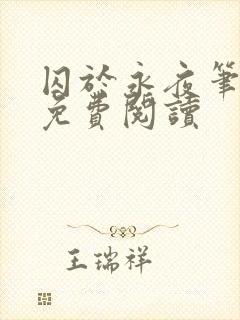 囚於永夜筆
免費閱讀
王瑞祥